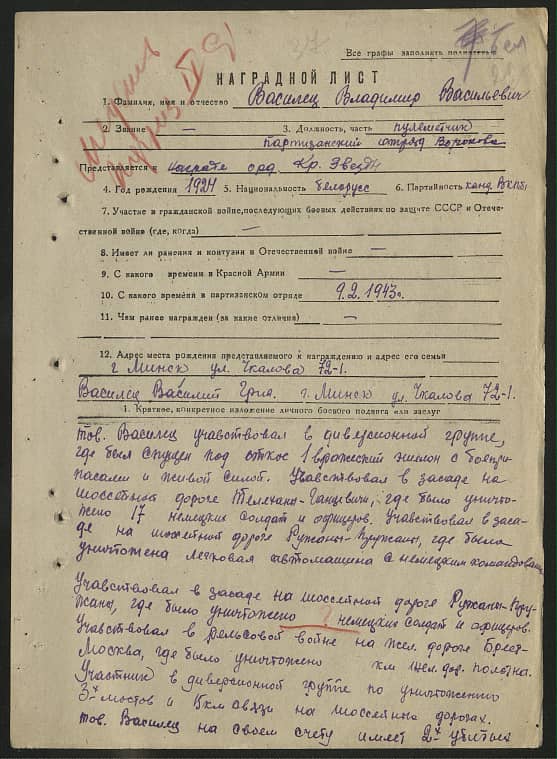 Все графы заполнять полностью
НАГРАДНОЙ ЛИСТ
1. Фамилия, имя и отчество Василец Владимир Васильевич
2. Звание — 3. Должность, часть пулеметчик
партизанский отряд Воронова
Представляется к награде орд. Кр. Звезды
4. Год рождения 1924 5. Национальность белорусс 6. Партийность канд ВКП/б/
7. Участие в гражданской войне, последующих боевых действиях по защите СССР и Отече-
ственной войне (где, когда) —
8. Имеет ли ранения и контузии в Отечественной войне —
9. С какого времени в Красной Армии —
10. С какого времени в партизанском отряде 9.2.1943г.
11. Чем ранее награжден (за какие отличия) —
12. Адрес места рождения представляемого к награждению и адрес его семьи
г Минск ул. Чкалова 72-1.
Василец Василий Григ. г. Минск ул. Чкалова 72-1.
1. Краткое, конкретное изложение личного боевого подвига или заслуг
тов. Василец учавствовал в диверсионной группе,
где был спущен под откос 1 вражеский эшелон с боепри-
пасами и живой силой. Учавствовал в засаде на
шоссейной дороге Телеханы-Ганцевичи, где было уничто-
жено 17 немецких солдат и офицеров. Учавствовал в заса-
де на шоссейной дороге Ружаны-Пружаны, где была
уничтожена легковая автомашина с немецким командован
Учавствовал в засаде на шоссейной дороге Ружаны-Пру-
жаны, где было уничтожено ? немецких солдат и офицеров.
Учавствовал в рельсовой войне на жел. дороге Брест-
Москва, где было уничтожено км жел. дор. полотна.
Участник в диверсионной группе по уничтожению
3-х мостов и км связи на шоссейных дорогах.
тов. Василец на своем счету имеет 2-х убитых